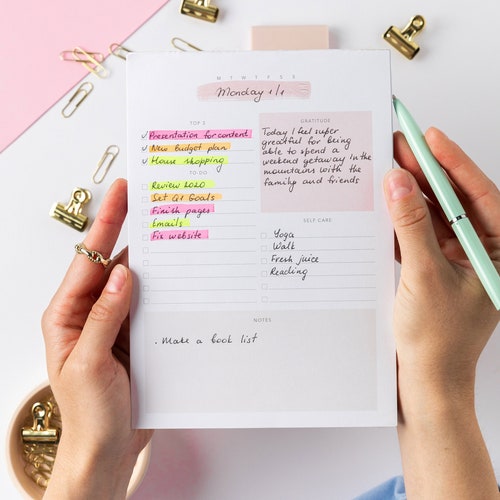 M T W T F S S
Monday 1/1
TOP 3
Presentation for content
New budget plan
House shopping
TO-DO
Review LOGO
Set Q1 Goals
Finish pages
Emails
Fix website
GRATITUDE
Today I feel super
greatful for being
able to spend a
weekend getaway in the
mountains with the
family and friends
SELF CARE
Yoga
Walk
Fresh juice
Reading
NOTES
. Make a book list